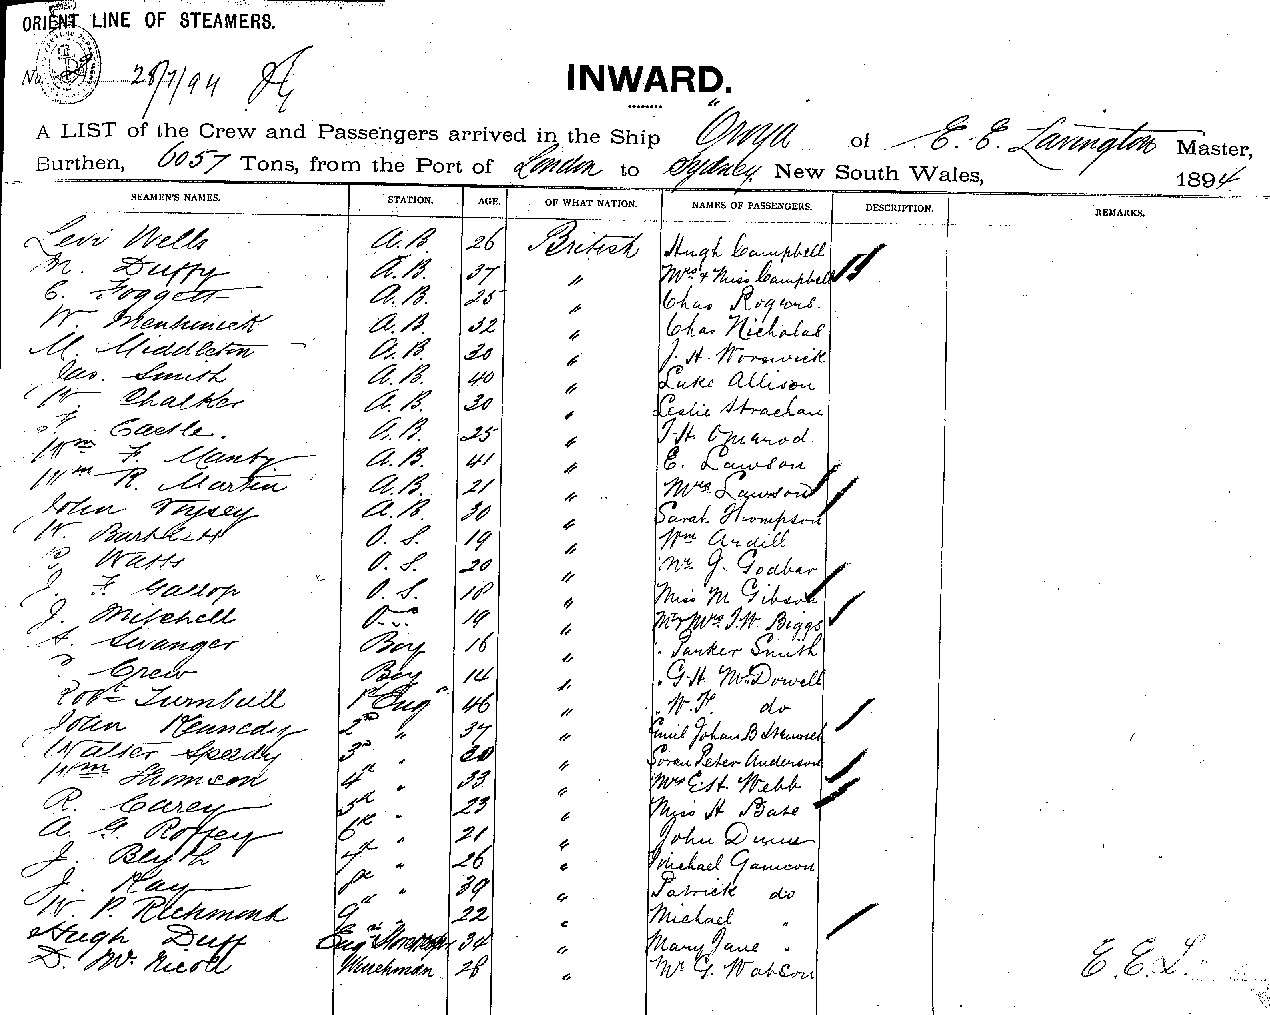 ORIENT LINE OF STEAMERS.
No. 28/7/94
INWARD.
A LIST of the Crew and Passengers arrived in the Ship "Oroya of E. E. Lavington Master,
Burthen, 6057 Tons, from the Port of London to Sydney New South Wales, 1894
SEAMEN'S NAMES. STATION. AGE. OF WHAT NATION. NAMES OF PASSENGERS. DESCRIPTION. REMARKS.
Levi Wells A.B. 26 British Hugh Campbell
M. Duffy A.B. 37 " Mrs & Miss Campbell
C. Foggett A.B. 25 " Chas Rogers
W. A.B. 32 " Chas Nicholas
M. Middleton A.B. 30 " J. H. Worswick
Jas. Smith A.B. 40 " Luke Allison
W. Chalker A.B. 30 " Leslie Strachan
F. Castle. A.B. 25 "
Wm F. Manby A.B. 41 " E. Lawson
Wm R. Martin A.B. 21 " Mrs Lawson
John A.B. 30 " Sarah Thompson
W. Bartlett O.S. 19 " Wm Ardill
Watts O.S. 20 " Mr J. Godbar
J. F. Gallop O.S. 18 " Miss M Gibson
J. Mitchell O.S. 19 " Mr & Mrs J. W. Biggs
Swanger Boy 16 " " Parker Smith
Crew Boy 14 " " G. H. McDowell
Robt Turnbull 1st Engr 46 " " W. H. do
John Kennedy 2nd " 37 " Emil Johan B
Walter Speedy 3rd " " Soren Peter Anderson
Wm Thomson 4th " 33 " Mrs E. H. Webb
R. Carey 5th " 23 " Miss H Bate
A. G. Roffey 6th " 21 " John
J. Blyth 7th " 26 " Michael
J. Kay 8th " 39 " Patrick do
W. P. Richmond 9th 22 " Michael "
Hugh Duff Engrs Storekeeper 34 " Mary Jane "
D. McNicoll Winchman 28 " Mr G. Watson
E. E. L.